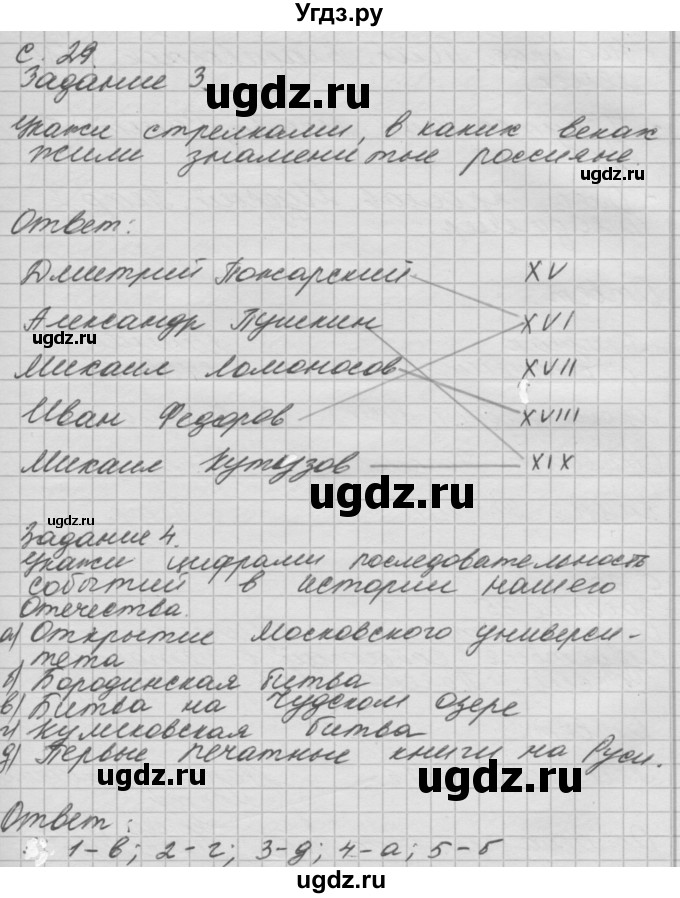 Угдз.ру
с. 29
Задание 3.
ugdz.ru
Укажи стрелками, в каких веках
жили знаменитые россияне.
ugdz.ru
Ответ:
Дмитрий Пожарский XV
Александр Пушкин XVI
ugdz.ru
Михаил Ломоносов XVII
Иван Федоров XVIII
Михаил Кутузов XIX
ugdz.ru
ugdz.ru
Задание 4.
Укажи цифрами последовательность
событий в истории нашего
Отечества.
а) Открытие Московского универси-
тета
б) Бородинская битва
в) Битва на Чудском озере
г) Куликовская битва
д) Первые печатные книги на Руси.
ugdz.ru ugdz.ru
Ответ:
1-в; 2-г; 3-д; 4-а; 5-б
ugdz.ru